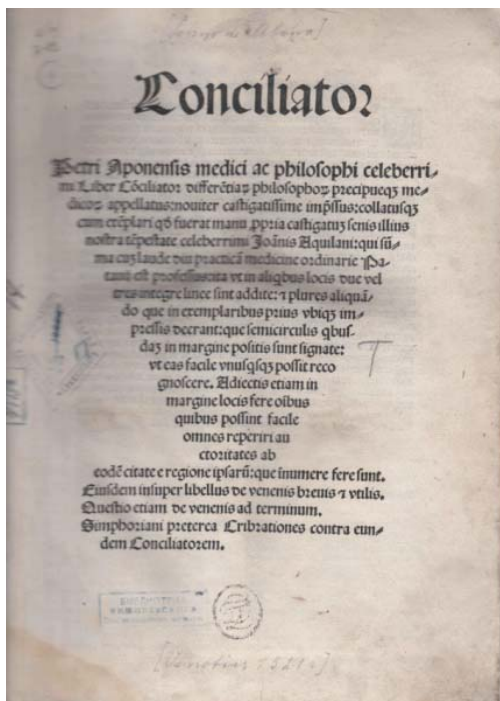 Conciliator
Petri Aponensis medici ac philosophi celeberri-
mi Liber Cōciliator differētiaꝝ philosophoꝝ precipueqꝫ me-
dicoꝝ appellatus: nouiter castigatissime imp̄ssus: collatusqꝫ
cum exēplari qd̄ fuerat manu ꝓpria castigatuꝫ senis illius
nostra tēpestate celeberrimi Joānis Aquilani: qui sū-
ma cuꝫ laude diu practicā medicine ordinarie Pa-
tauii est professus: ita vt in aliqbus locis due vel
tres integre linee sint addite: ⁊ plures aliquā-
do que in exemplaribus prius vbiqꝫ im-
pressis deerant: que semicirculis qbus-
daꝫ in margine positis sunt signate:
vt eas facile vnusqsqꝫ possit reco
gnoscere. Adiectis etiam in
margine locis fere oībus
quibus possint facile
omnes reperiri au
ctoritates ab
eodē citate e regione ipsarū: que inumere fere sunt.
Eiusdem insuper libellus de venenis breuis ⁊ vtilis.
Questio etiam de venenis ad terminum.
Simphoriani preterea Cribrationes contra eun-
dem Conciliatorem.
T
[Venetiis 1521]